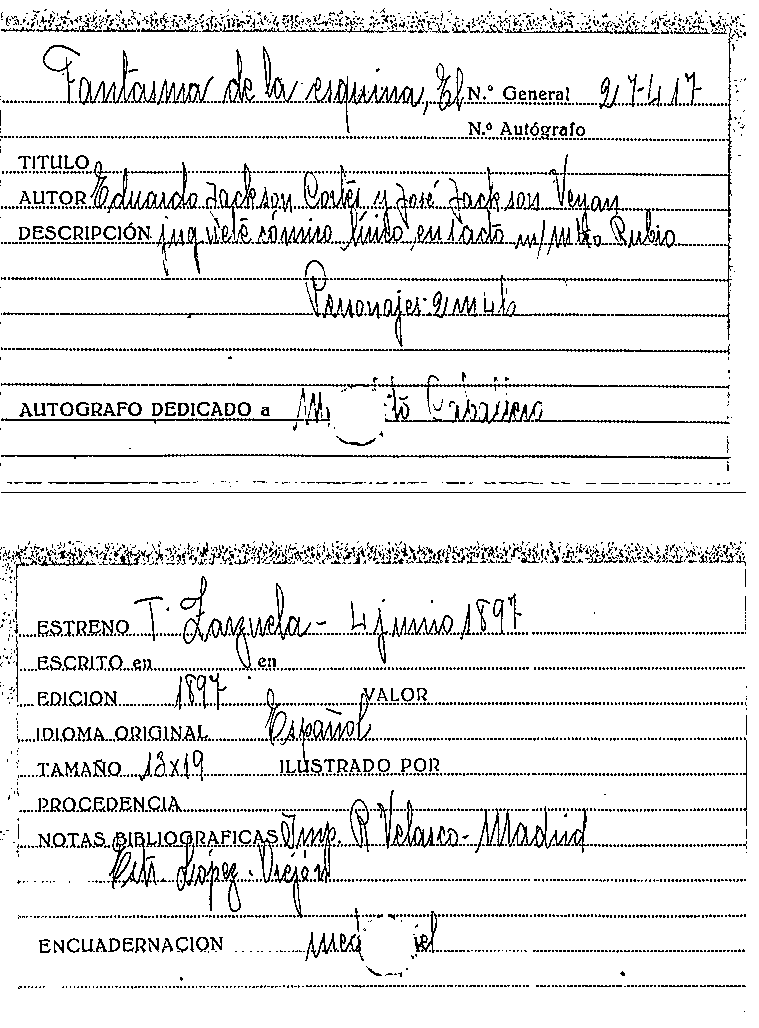 Fantasma de la esquina, El N.º General 27-417
N.º Autógrafo
TITULO
AUTOR Eduardo Jackson Cortés y José Jackson Veyan
DESCRIPCIÓN juguete cómico lírico, en 1 acto m/ mtro Rubio
Personajes: 2 m 4 h
AUTOGRAFO DEDICADO a Caballero
ESTRENO T. Zarzuela - 4 junio 1897
ESCRITO en en
EDICION 1897 VALOR
IDIOMA ORIGINAL Español
TAMAÑO 13x19 ILUSTRADO POR
PROCEDENCIA
NOTAS BIBLIOGRAFICAS Imp. R Velasco - Madrid
López
ENCUADERNACION